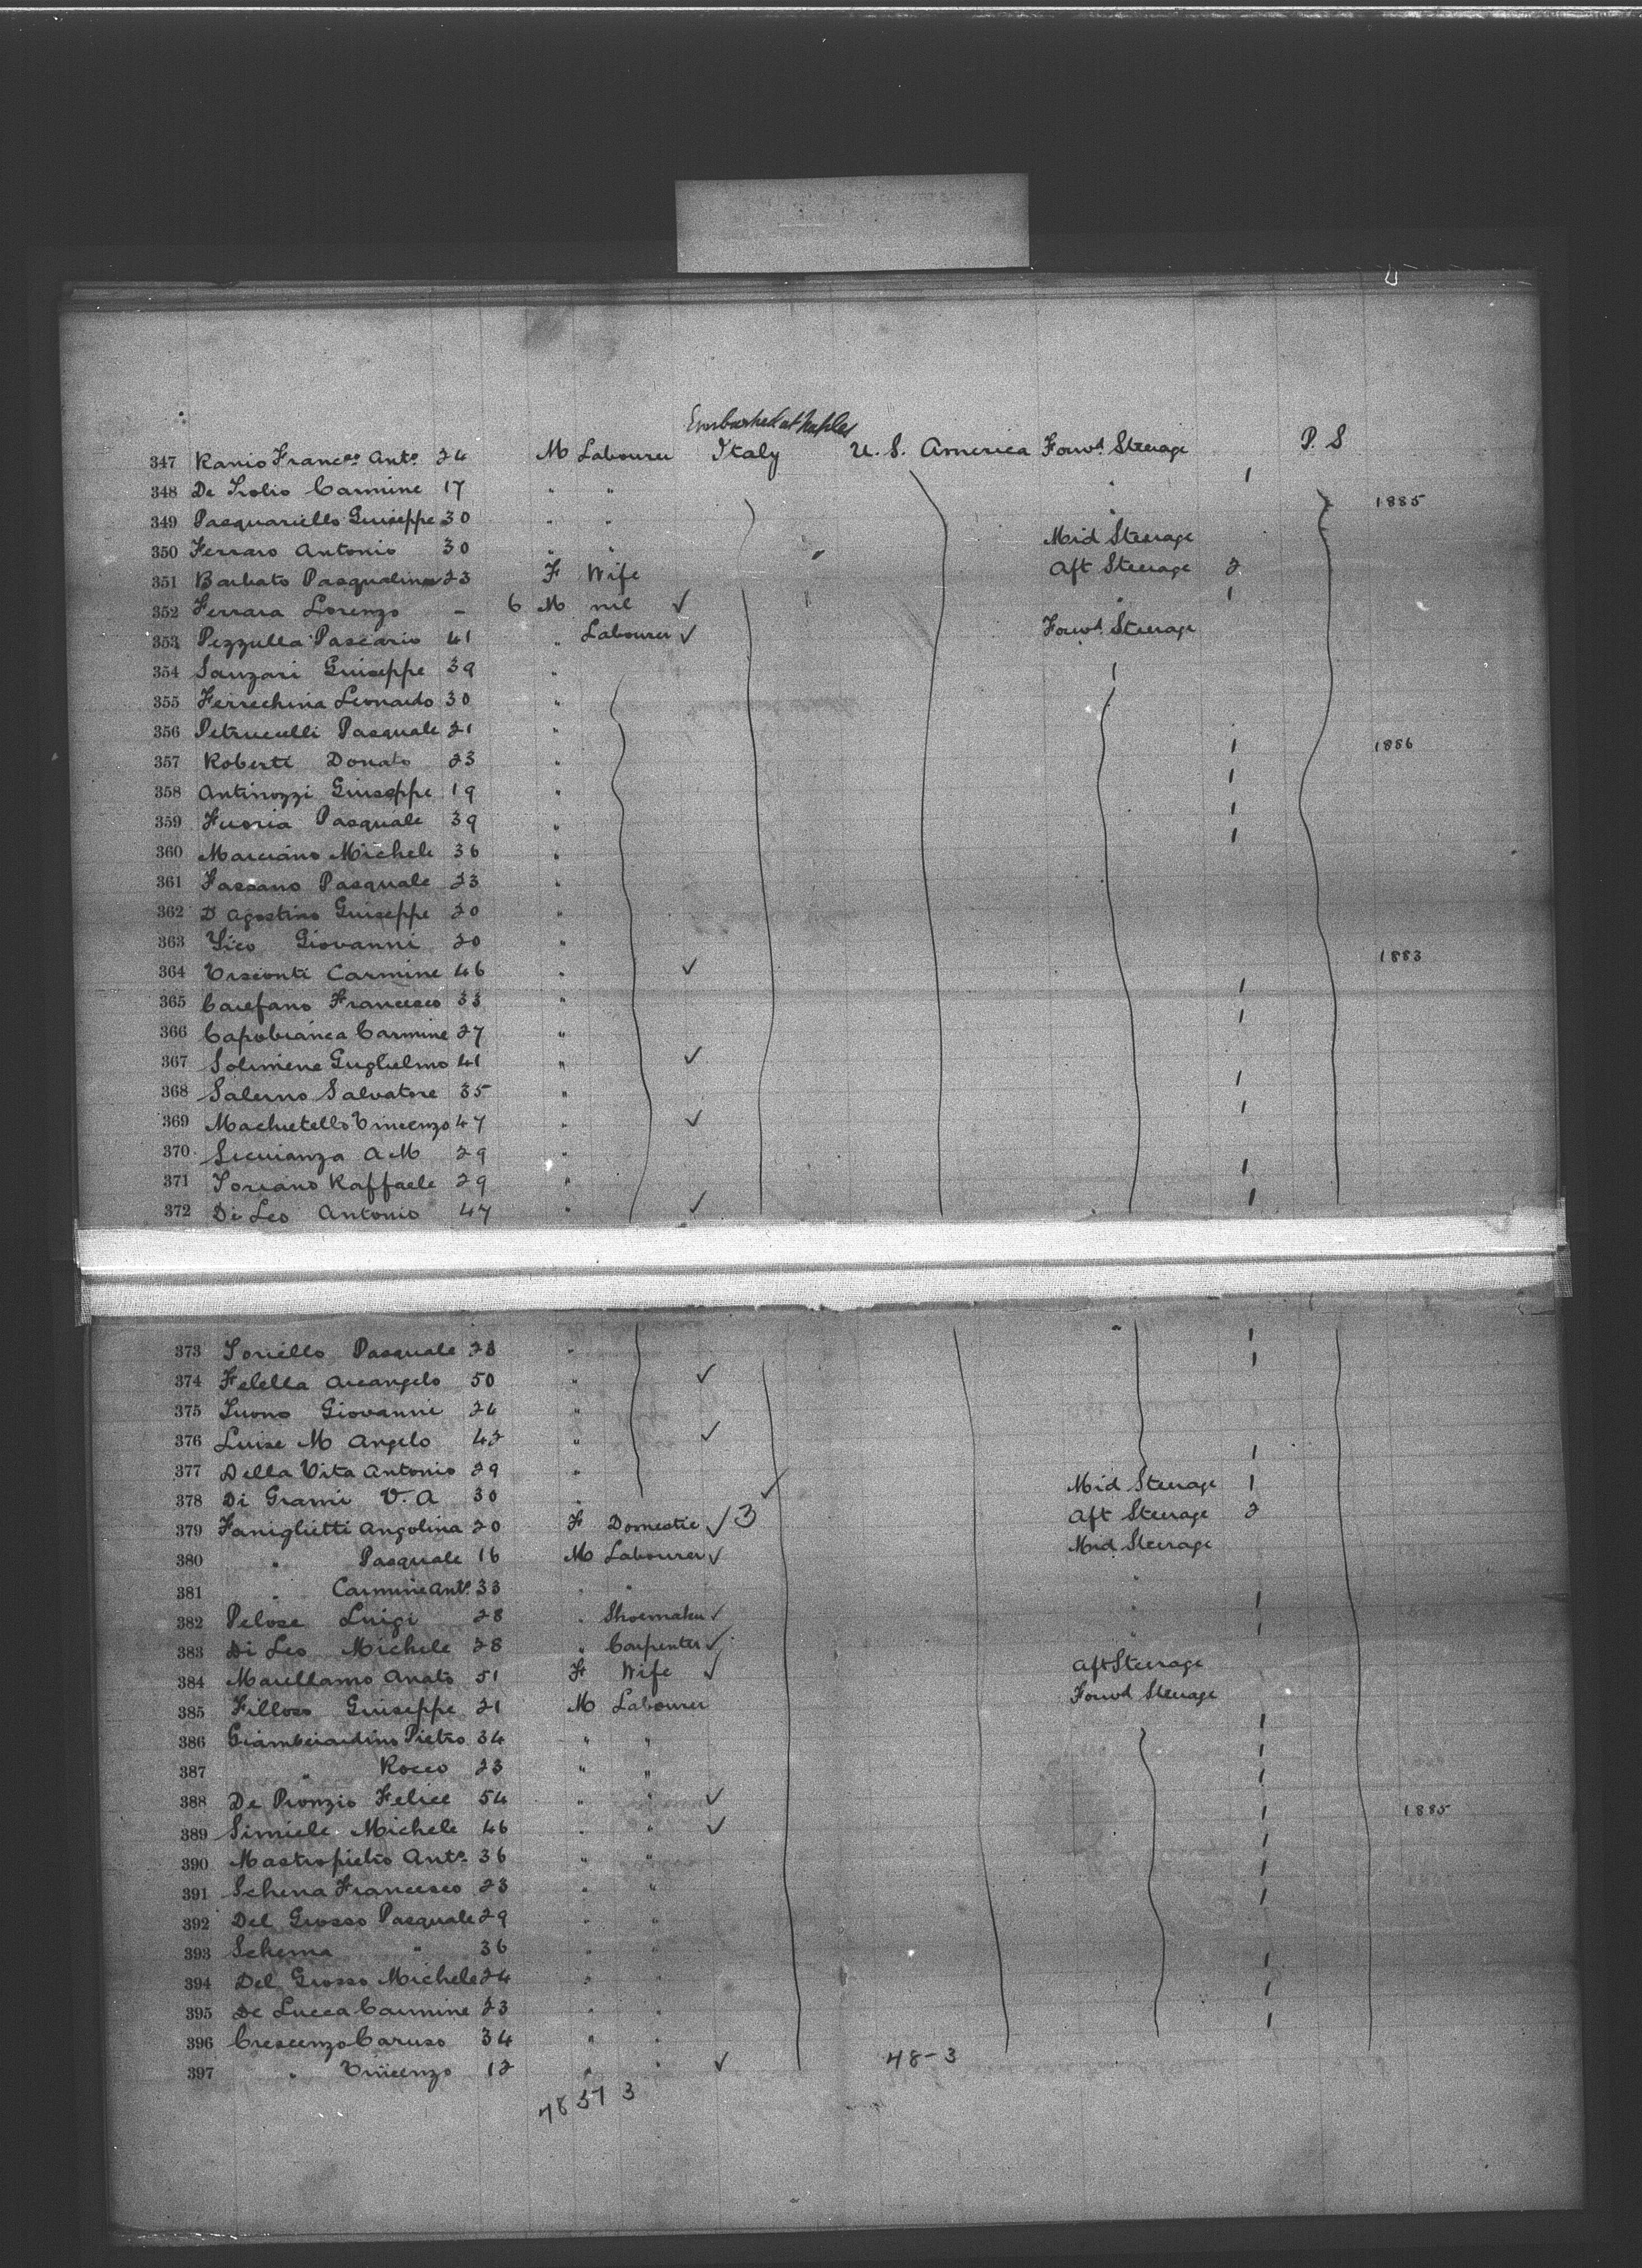 Embarked at Naples
347 Ranio Franc^co Ant^o 24 M Labourer Italy U. S. America Forw^d Steerage P. S
348 De Irolio Carmine 17 " " " 1
349 Pasquariello Guiseppe 30 " " " 1885
350 Ferraro Antonio 30 " " " Mid Steerage
351 Barbato Pasqualina 23 F Wife Aft Steerage 2
352 Ferrara Lorenzo - 6 M nil ✓ " 1
353 Pezzulla Pascario 41 " Labourer ✓ Forw^d Steerage
354 Sanzari Guiseppe 39 "
355 Ferrechina Leonardo 30 "
356 Petruccelli Pasquale 21 "
357 Roberti Donato 23 " 1 1886
358 Antinozzi Guiseppe 19 " 1
359 Fuoria Pasquale 39 " 1
360 Marciano Michele 36 " 1
361 Fassano Pasquale 23 "
362 D Agostino Guiseppe 20 "
363 Sico Giovanni 20 "
364 Visconti Carmine 46 " ✓ 1883
365 Carefano Francesco 33 " 1
366 Capobianca Carmine 27 " 1
367 Solimene Guglielmo 41 " ✓
368 Salerno Salvatore 35 " 1
369 Machietello Vincenzo 47 " ✓ 1
370 A M 29 "
371 Soriano Raffaele 29 " 1
372 Di Leo Antonio 47 " ✓ 1
373 Soriello Pasquale 28 " " 1
374 Felella Arcangelo 50 " ✓ 1
375 Iuono Giovanni 24 "
376 Luise M Angelo 42 " ✓
377 Della Vita Antonio 29 " 1
378 Di Grami V. A 30 " ✓ Mid Steerage 1
379 Faniglietti Angolina 20 F Domestic ✓ 3 Aft Steerage 2
380 " Pasquale 16 M Labourer ✓ Mid Steerage
381 " Carmine Ant^o 33 " " "
382 Pelose Luigi 28 " Shoemaker ✓ " 1
383 Di Leo Michele 28 " Carpenter ✓ " 1
384 Marellamo Anato 51 F Wife ✓ Aft Steerage
385 Filloso Guiseppe 21 M Labourer Forw^d Steerage
386 Giambciardino Pietro 34 " " 1
387 " Rocco 23 " " 1
388 De Pronzio Felice 54 " " ✓ 1
389 Simiele Michele 46 " " ✓ 1 1885
390 Mastropietro Ant^o 36 " " 1
391 Schena Francesco 23 " " 1
392 Del Grosso Pasquale 29 " " 1
393 Schema " 36 " "
394 Del Grosso Michele 24 " " 1
395 De Lucca Carmine 23 " " 1
396 Crescenzo Caruso 34 " " 1
397 " Vincenzo 12 " " ✓ 48-3
3